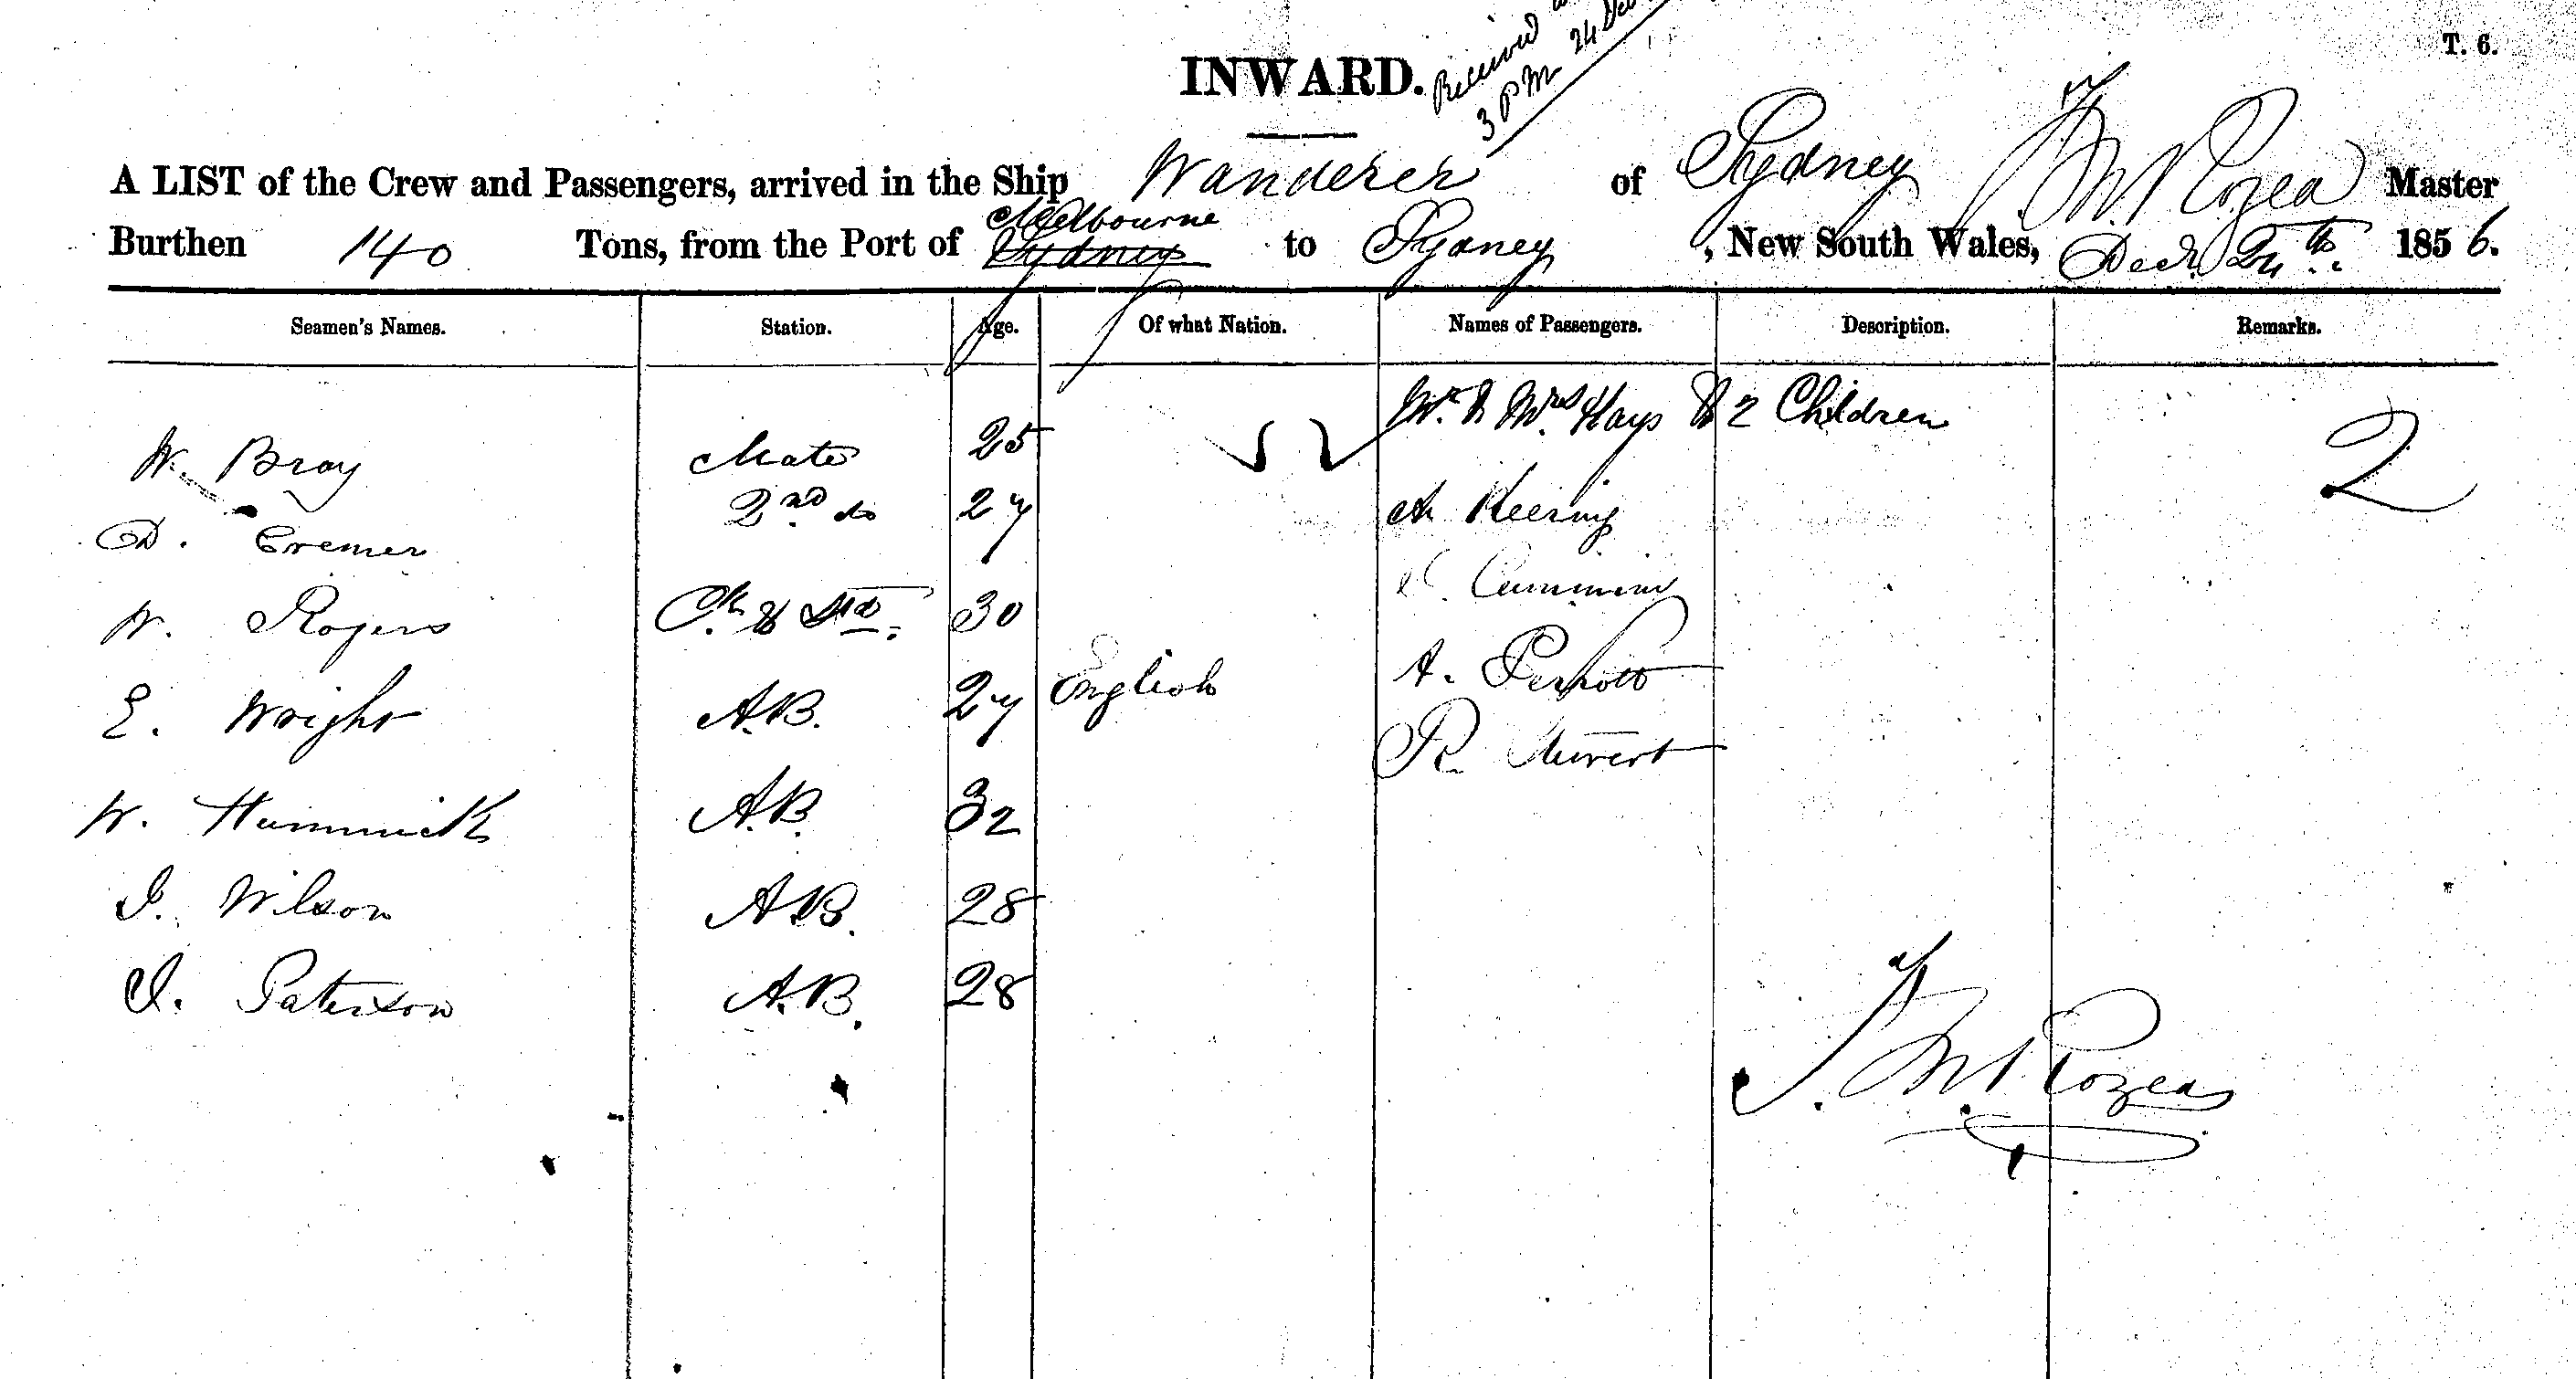 T. 6.
INWARD.
Received
3 PM 24 Dec
A LIST of the Crew and Passengers, arrived in the Ship Wanderer of Sydney Master
Melbourne
Burthen 140 Tons, from the Port of Sydney to Sydney, New South Wales, Decr 24th 1856.
Seamen's Names. Station. Age. Of what Nation. Names of Passengers. Description. Remarks.
Mr & Mrs Hays & 2 Children 2
W. Bray Mate 25
D. Cremer 2nd do 27 A Keering
W. Rogers Ck & Std. 30
E. Wright A.B. 27 English A. Perrott
R.
W. Hummick A.B. 32
J. Wilson AB. 28
J. Paterson A.B. 28